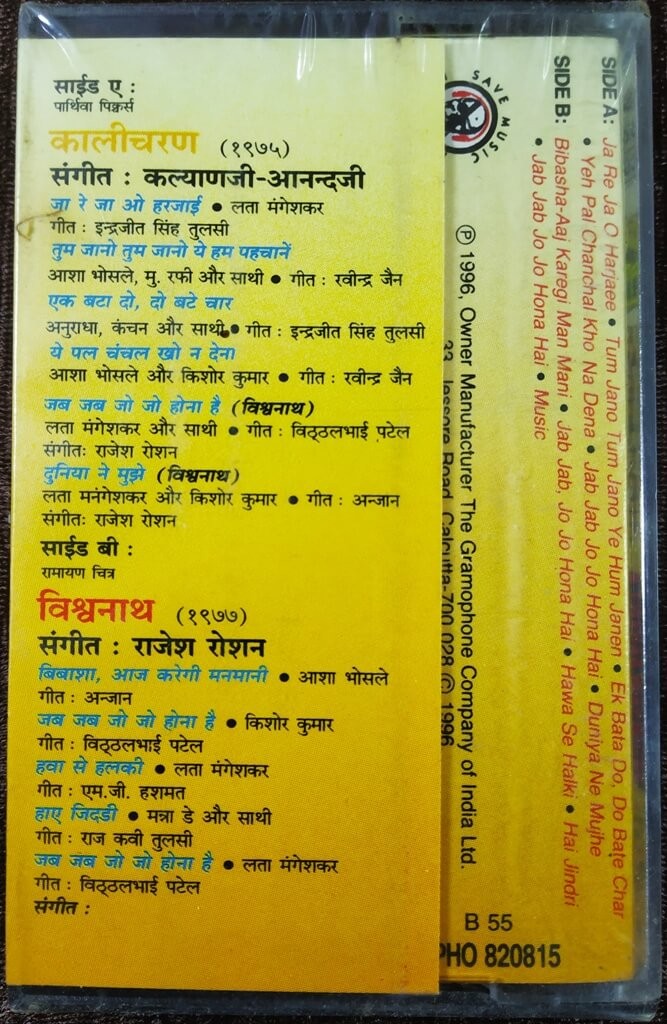 साईड ए :
पार्थिवा पिक्चर्स
कालीचरण (१९७५)
संगीत : कल्याणजी-आनन्दजी
जा रे जा ओ हरजाई • लता मंगेशकर
गीत : इन्द्रजीत सिंह तुलसी
तुम जानो तुम जानो ये हम पहचानें
आशा भोसले, मु. रफी और साथी • गीत : रवीन्द्र जैन
एक बटा दो, दो बटे चार
अनुराधा, कंचन और साथी • गीत : इन्द्रजीत सिंह तुलसी
ये पल चंचल खो न देना
आशा भोसले और किशोर कुमार • गीत : रवीन्द्र जैन
जब जब जो जो होना है (विश्वनाथ)
लता मंगेशकर और साथी • गीत : विठ्ठलभाई पटेल
संगीतः राजेश रोशन
दुनिया ने मुझे (विश्वनाथ)
लता मनंगेशकर और किशोर कुमार • गीत : अन्जान
संगीतः राजेश रोशन
साईड बी :
रामायण चित्र
विश्वनाथ (१९७७)
संगीत : राजेश रोशन
बिबाशा, आज करेगी मनमानी • आशा भोसले
गीत : अन्जान
जब जब जो जो होना है • किशोर कुमार
गीत : विठ्ठलभाई पटेल
हवा से हलकी • लता मंगेशकर
गीत : एम.जी. हशमत
हाए जिंदडी • मन्ना डे और साथी
गीत : राज कवी तुलसी
जब जब जो जो होना है • लता मंगेशकर
गीत : विठ्ठलभाई पटेल
संगीत :
SIDE A: Ja Re Ja O Harjaee • Tum Jano Tum Jano Ye Hum Janen • Ek Bata Do, Do Bate Char
• Yeh Pal Chanchal Kho Na Dena • Jab Jab Jo Jo Hona Hai • Duniya Ne Mujhe
SIDE B: Bibasha-Aaj Karegi Man Mani • Jab Jab, Jo Jo Hona Hai • Hawa Se Halki • Hai Jindri
• Jab Jab Jo Jo Hona Hai • Music
SAVE MUSIC
℗ 1996, Owner Manufacturer The Gramophone Company of India Ltd.
33, Jessore Road, Calcutta-700 028 © 1996
B 55
PHO 820815